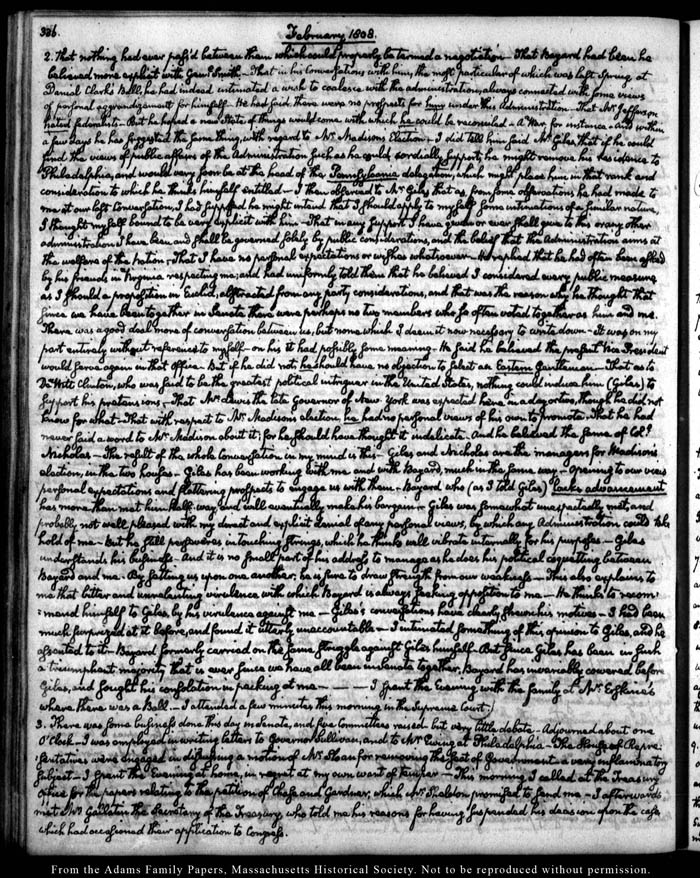 326.
February 1808.
2. That nothing had ever pass'd between them which could properly be termed a negotiation — That Bayard had been he
believed more explicit with Genl. Smith — That in his conversations with him, the most particular of which was last Spring at
Daniel Clark's Ball, he had indeed intimated a wish to coalesce with the administration, always connected with some views
of personal aggrandizement for himself — He had said there were no prospects for him under this Administration. That Mr. Jefferson
hated federalists — But he hoped a new State of things would come with which he could be reconciled — A War for instance — And within
a few days he has suggested the same thing, with regard to Mr. Madison's Election — I did tell him said Mr. Giles, that if he could
find the views of public affairs of the Administration such as he could cordially support, he might remove his residence to
Philadelphia, and would very soon be at the head of the Pennsylvania delegation, which might place him in that rank and
consideration to which he thinks himself entitled — I then observed to Mr. Giles that as from some observations he had made to
me at our last Conversation, I had supposed he might intend that I should apply to myself some intimations of a similar nature,
I thought myself bound to be very explicit with him — That in any support I have given or ever shall give to this or any other
administration I have been, and shall be governed solely by public considerations, and the belief that the Administration aims at
the welfare of the Nation — That I have no personal expectations or wishes whatsoever — He replied that he had often been asked
by his friends in Virginia respecting me; and had uniformly told them that he believed I considered every public measure
as I should a proposition in Euclid, abstracted from any party considerations, and that was the reason why he thought that
since we have been together in Senate there were perhaps no two members who so often voted together as him and me.
There was a good deal more of conversation between us, but none which I deem it now necessary to write down — It was on my
part entirely without reference to myself — on his it had possibly some meaning — He said he believed the present Vice President
would serve again in that Office — But if he did not, he should have no objection to select an Eastern Gentleman — That as to
De Witt Clinton, who was said to be the greatest political intriguer in the United States, nothing could induce him (Giles) to
support his pretensions — That Mr. Lewis the late Governor of New York was expected here in a day or two, though he did not
know for what — That with respect to Mr. Madison's election, he had no personal views of his own to promote. That he had
never said a word to Mr. Madison about it; for he should have thought it indelicate. And he believed the same of Coll.
Nicholas — The result of the whole conversation in my mind is this — Giles and Nicholas are the managers for Madison's
election, in the two houses — Giles has been working with me and with Bayard, much in the same way — Opening to our views
personal expectations and flattering prospects to engage us with them — Bayard who (as I told Giles) lacks advancement
has more than met him half way, and will eventually make his bargain — Giles was somewhat unexpectedly met, and
probably not well pleased with my direct and explicit denial of any personal views, by which any Administration could take
hold of me — But he still perseveres in touching strings, which he thinks will vibrate internally for his purposes — Giles
understands his business — And it is no small part of his address to manage as he does his political coquetting between
Bayard and me — By setting us upon one another, he is sure to draw strength from our weakness — This also explains to
me that bitter and unrelenting virulence with which Bayard is always seeking opposition to me — He thinks to recom
:mend himself to Giles, by his virulence against me — Giles's conversations have clearly shewn his motives — I had been
much surprized at it before, and found it utterly unaccountable — I intimated something of this opinion to Giles, and he
assented to it — Bayard formerly carried on the same struggle against Giles himself — But since Giles has been in such
a triumphant majority that is ever since we have all been in Senate together, Bayard has invariably cowered before
Giles, and sought his consolation in pecking at me — — — I spent the Evening with the family at Mr. Erskine's
where there was a Ball. — I attended a few minutes this morning in the Supreme Court.
3. There was some business done this day in Senate, and five Committees raised but very little debate — Adjourned about one
O'Clock — I was employed in writing letters to Governor Sullivan, and to Mr. Ewing at Philadelphia — The House of Repre
:sentatives were engaged in debating a motion of Mr. Sloan for removing the Seat of Government — a very inflammatory
subject — I spent the Evening at home, in regret at my own want of temper — This morning I called at the Treasury
Office for the papers relating to the petition of Chase and Gardner, which Mr. Sheldon promised to send me — I afterwards
met Mr. Gallatin the Secretary of the Treasury, who told me his reasons for having suspended his decision upon the case
which had occasioned their application to Congress.
From the Adams Family Papers, Massachusetts Historical Society. Not to be reproduced without permission.